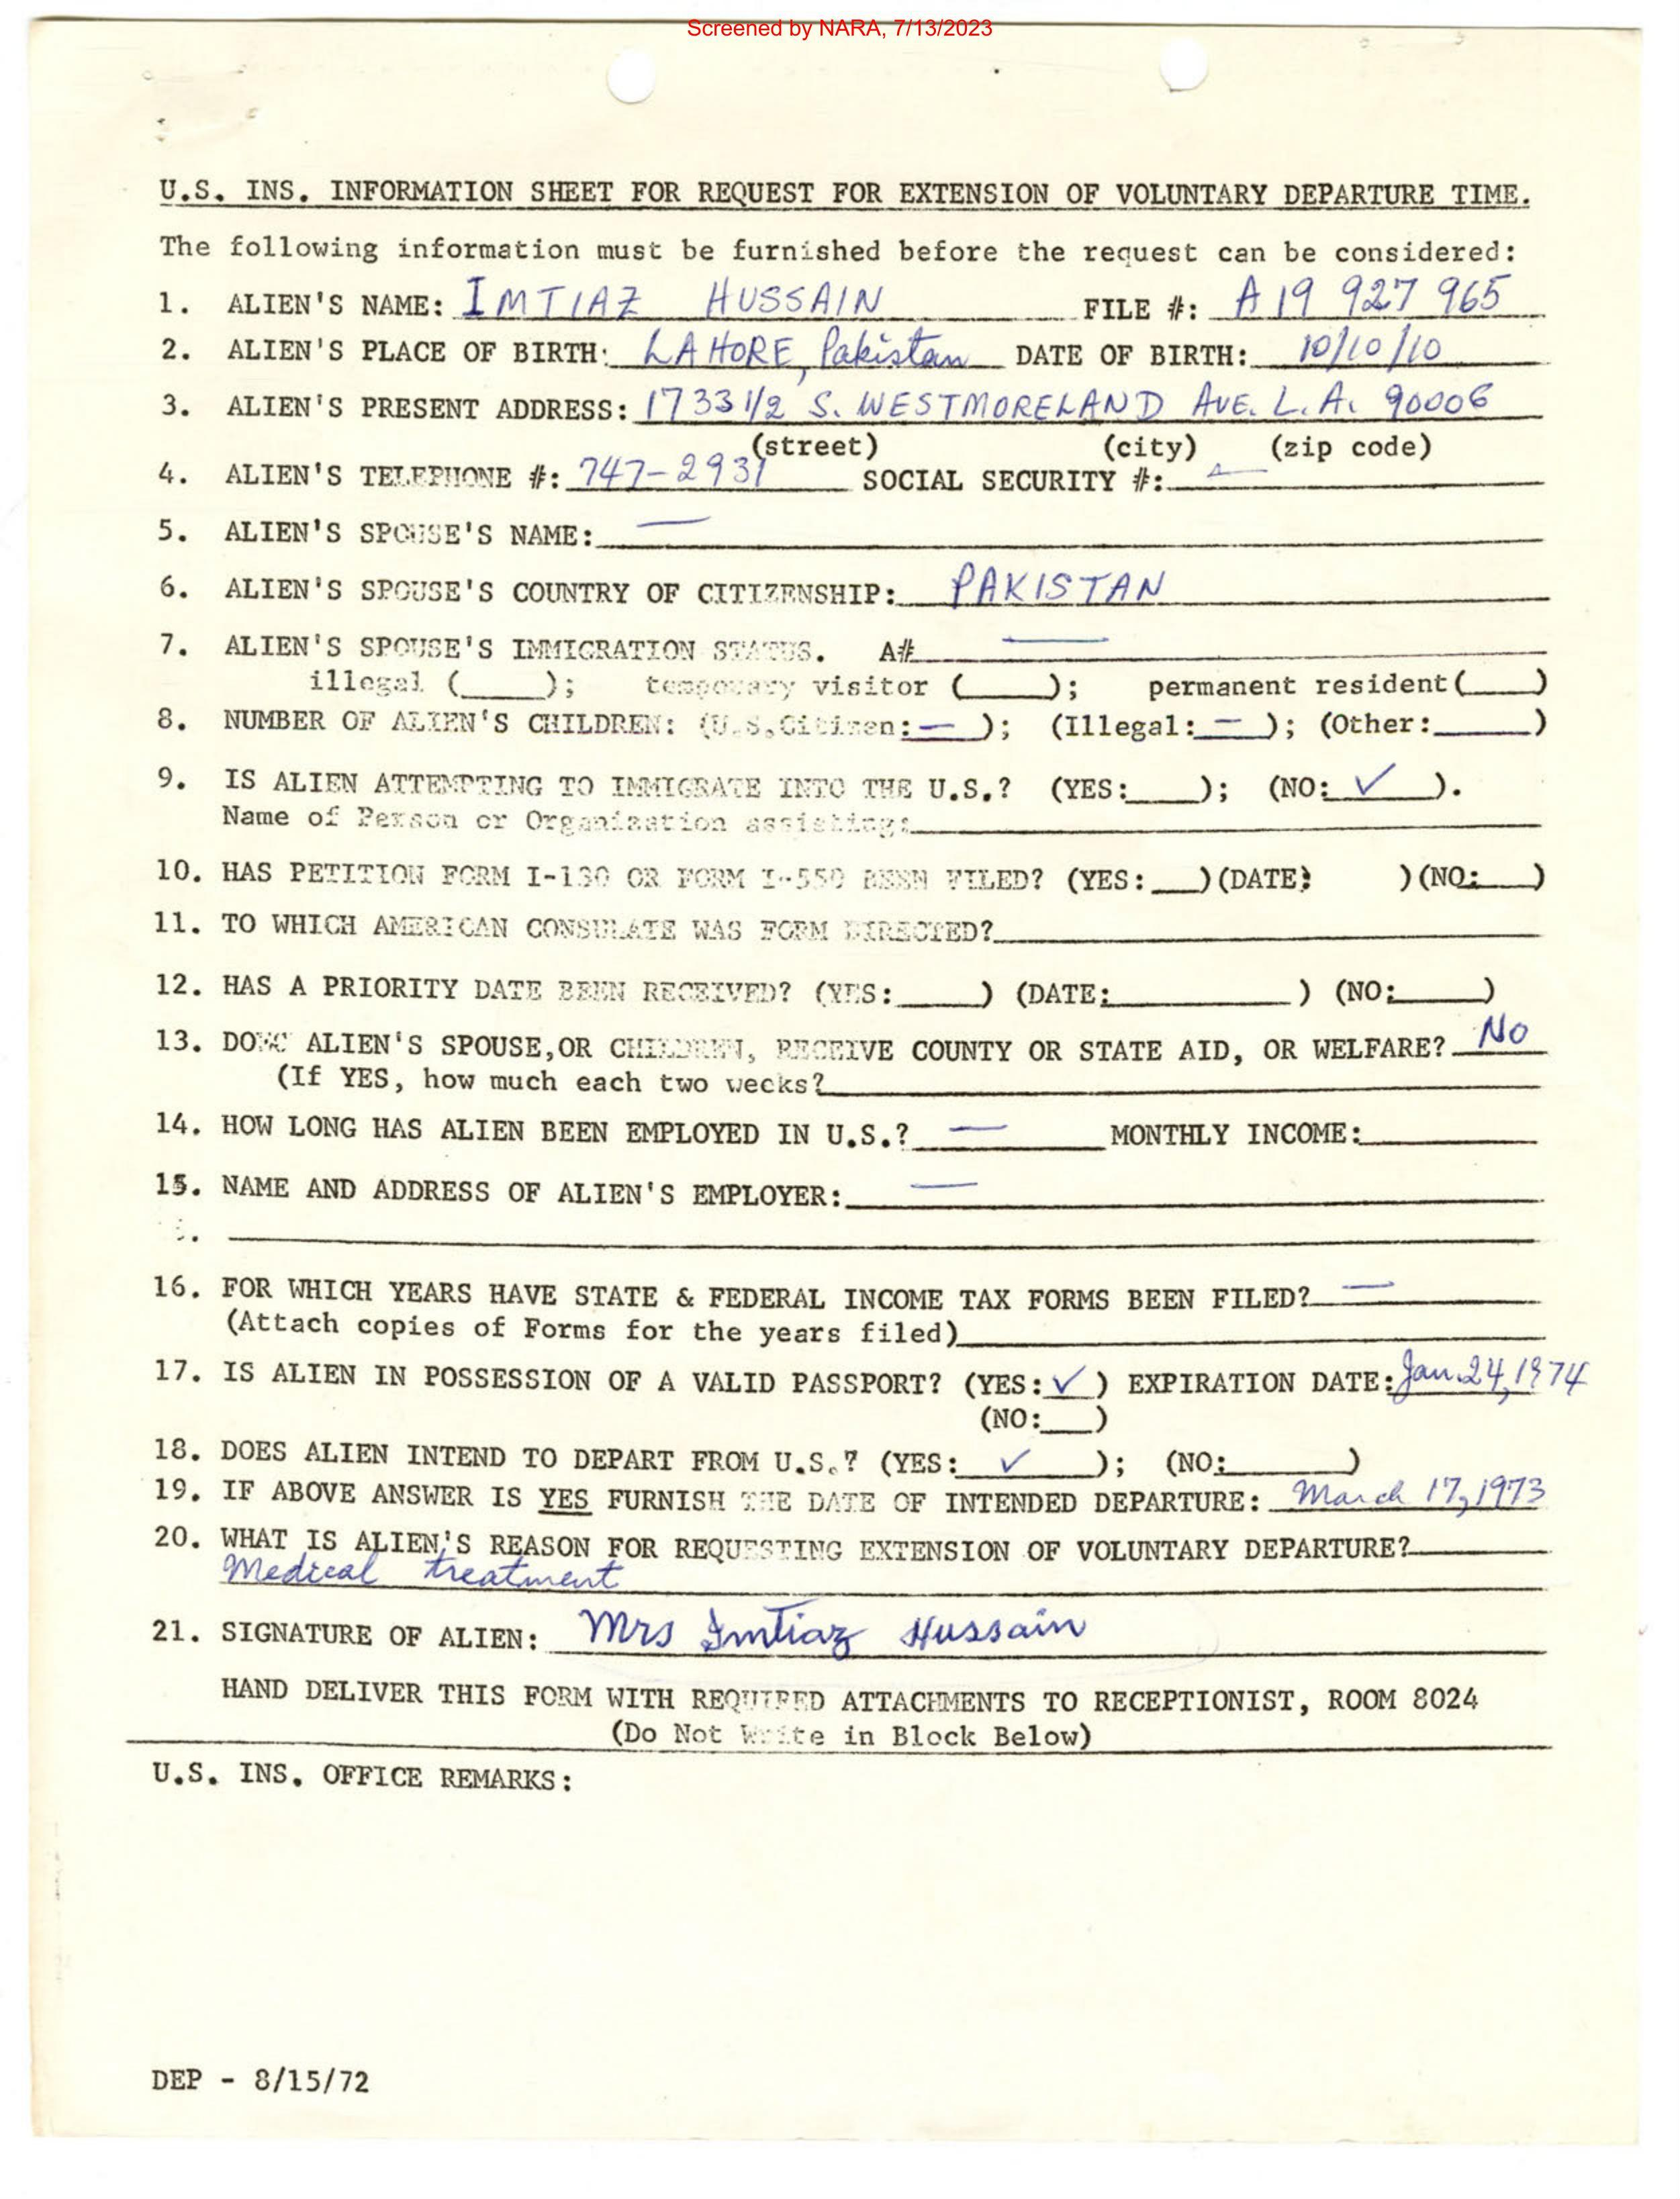 Screened by NARA, 7/13/2023
U.S. INS. INFORMATION SHEET FOR REQUEST FOR EXTENSION OF VOLUNTARY DEPARTURE TIME.
The following information must be furnished before the request can be considered:
1. ALIEN'S NAME: IMTIAZ HUSSAIN FILE #: A 19 927 965
2. ALIEN'S PLACE OF BIRTH: LAHORE, Pakistan DATE OF BIRTH: 10/10/10
3. ALIEN'S PRESENT ADDRESS: 1733 1/2 S. WESTMORELAND AVE. L.A. 90006
(street) (city) (zip code)
4. ALIEN'S TELEPHONE #: 747-2931 SOCIAL SECURITY #: —
5. ALIEN'S SPOUSE'S NAME: —
6. ALIEN'S SPOUSE'S COUNTRY OF CITIZENSHIP: PAKISTAN
7. ALIEN'S SPOUSE'S IMMIGRATION STATUS. A# —
illegal (____); temporary visitor (____); permanent resident(____)
8. NUMBER OF ALIEN'S CHILDREN: (U.S.Citizen: — ); (Illegal: — ); (Other:____)
9. IS ALIEN ATTEMPTING TO IMMIGRATE INTO THE U.S.? (YES:____); (NO: ✓ ).
Name of Person or Organization assisting:
10. HAS PETITION FORM I-130 OR FORM I-550 BEEN FILED? (YES:___)(DATE: )(NO:___)
11. TO WHICH AMERICAN CONSULATE WAS FORM DIRECTED?
12. HAS A PRIORITY DATE BEEN RECEIVED? (YES:____) (DATE:__________) (NO:____)
13. DOES ALIEN'S SPOUSE,OR CHILDREN, RECEIVE COUNTY OR STATE AID, OR WELFARE? No
(If YES, how much each two weeks?
14. HOW LONG HAS ALIEN BEEN EMPLOYED IN U.S.? — MONTHLY INCOME:
15. NAME AND ADDRESS OF ALIEN'S EMPLOYER: —
16. FOR WHICH YEARS HAVE STATE & FEDERAL INCOME TAX FORMS BEEN FILED? —
(Attach copies of Forms for the years filed)
17. IS ALIEN IN POSSESSION OF A VALID PASSPORT? (YES: ✓ ) EXPIRATION DATE: Jan. 24, 1974
(NO:___)
18. DOES ALIEN INTEND TO DEPART FROM U.S.? (YES: ✓ ); (NO:______)
19. IF ABOVE ANSWER IS YES FURNISH THE DATE OF INTENDED DEPARTURE: March 17, 1973
20. WHAT IS ALIEN'S REASON FOR REQUESTING EXTENSION OF VOLUNTARY DEPARTURE?
Medical treatment
21. SIGNATURE OF ALIEN: Mrs Imtiaz Hussain
HAND DELIVER THIS FORM WITH REQUIRED ATTACHMENTS TO RECEPTIONIST, ROOM 8024
(Do Not Write in Block Below)
U.S. INS. OFFICE REMARKS:
DEP - 8/15/72